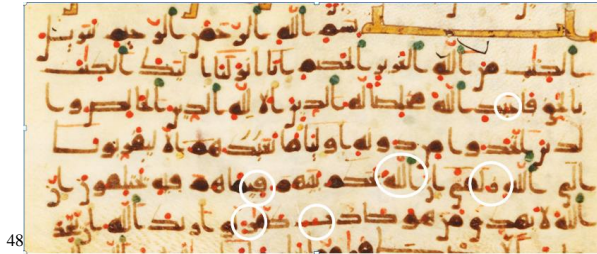 بسم الله الرحمن الرحيم تنزيل
الكتب من الله العزيز الحكيم انا انزلنا اليك الكتب
بالحق فاعبد الله مخلصا له الدين الا لله الدين الخالص وا
لذين اتخذوا من دونه اوليا ما نعبدهم الا ليقربونا
الى الله زلفى ان الله يحكم بينهم في ما هم فيه يختلفون ان
الله لا يهدي من هو كذب كفار لو اراد الله ان يتخذ
48